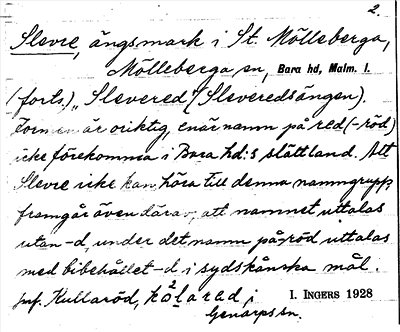 2.
Slevre, ängsmark i St. Mölleberga,
Mölleberga sn, Bara hd, Malm. l.
(forts.) „Slevered" (Sleveredsängen).
Formen är oriktig, enär namn på red (-röd)
icke förekomma i Bara hd:s slättland. Att
Slevre icke kan höra till denna namngrupp
framgår även därav, att namnet uttalas
utan -d, under det namn på -röd uttalas
med bibehållet -d i sydskånska mål.
Jmf. Kullaröd, i
Genarps sn.
I. INGERS 1928